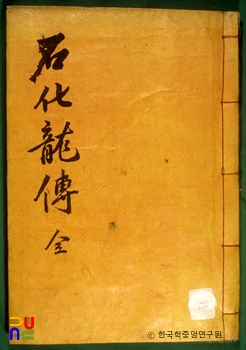 石化龍傳 全
ⓒ 한국학중앙연구원